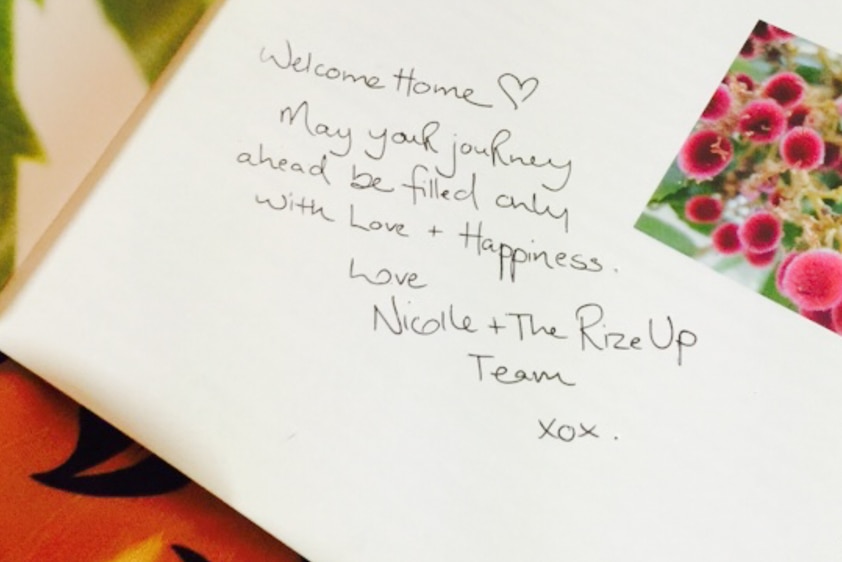 Welcome Home ♡
May your journey
ahead be filled only
with Love + Happiness.
Love
Nicolle + The Rize Up
Team
xox.